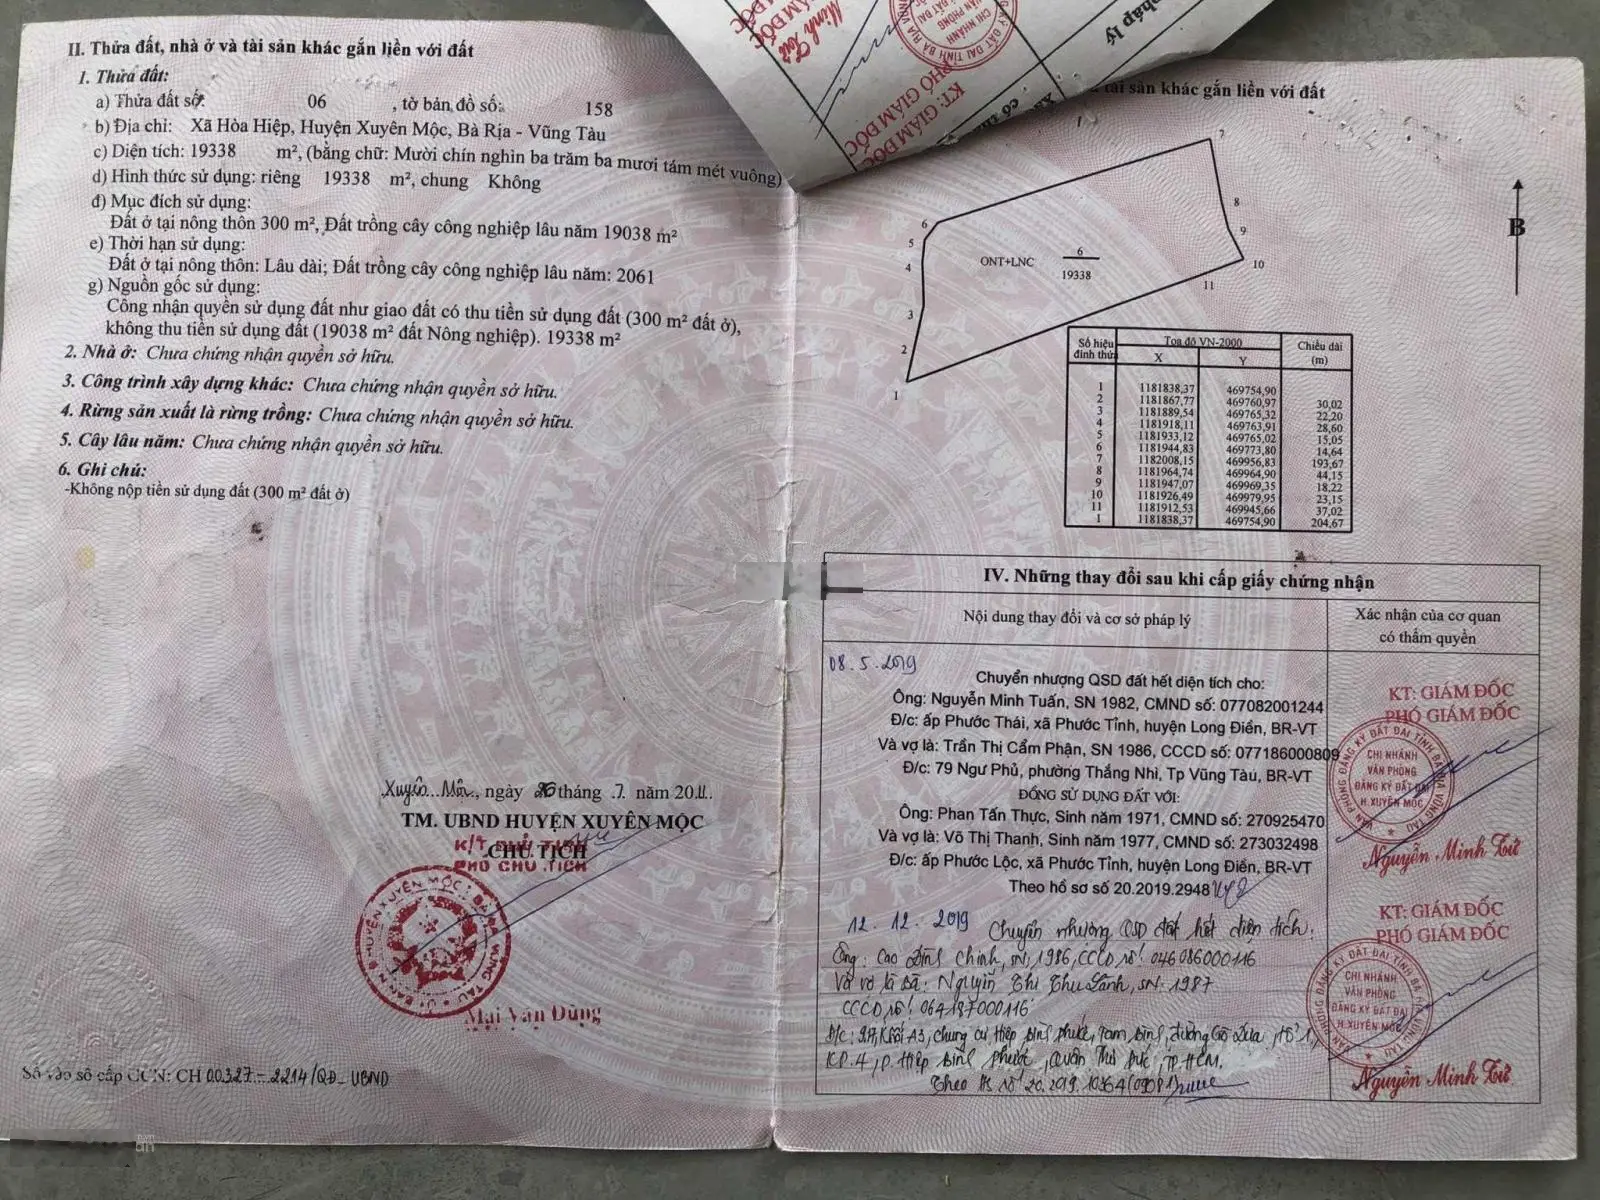 II. Thửa đất, nhà ở và tài sản khác gắn liền với đất
1. Thửa đất:
a) Thửa đất số: 06 , tờ bản đồ số: 158
b) Địa chỉ: Xã Hòa Hiệp, Huyện Xuyên Mộc, Bà Rịa - Vũng Tàu
c) Diện tích: 19338 m², (bằng chữ: Mười chín nghìn ba trăm ba mươi tám mét vuông)
d) Hình thức sử dụng: riêng 19338 m², chung Không
đ) Mục đích sử dụng:
Đất ở tại nông thôn 300 m², Đất trồng cây công nghiệp lâu năm 19038 m²
e) Thời hạn sử dụng:
Đất ở tại nông thôn: Lâu dài; Đất trồng cây công nghiệp lâu năm: 2061
g) Nguồn gốc sử dụng:
Công nhận quyền sử dụng đất như giao đất có thu tiền sử dụng đất (300 m² đất ở),
không thu tiền sử dụng đất (19038 m² đất Nông nghiệp). 19338 m²
2. Nhà ở: Chưa chứng nhận quyền sở hữu.
3. Công trình xây dựng khác: Chưa chứng nhận quyền sở hữu.
4. Rừng sản xuất là rừng trồng: Chưa chứng nhận quyền sở hữu.
5. Cây lâu năm: Chưa chứng nhận quyền sở hữu.
6. Ghi chú:
-Không nộp tiền sử dụng đất (300 m² đất ở)
Xuyên Mộc, ngày 26 tháng 7 năm 2011
TM. UBND HUYỆN XUYÊN MỘC
CHỦ TỊCH
K/T CHỦ TỊCH
PHÓ CHỦ TỊCH
Mai Văn Dũng
Số vào sổ cấp GCN: CH 00327-2214/QĐ-UBND
pháp lý
KT: GIÁM ĐỐC
PHÓ GIÁM ĐỐC
Minh Tứ
tài sản khác gắn liền với đất
B
7
8
9
10
11
6
5
4
3
2
1
ONT+LNC
6
19338
Số hiệu đỉnh thửa Tọa độ VN-2000 Chiều dài (m)
X Y
1 1181838,37 469754,90
2 1181867,77 469760,97 30,02
3 1181889,54 469765,32 22,20
4 1181918,11 469763,91 28,60
5 1181933,12 469765,02 15,05
6 1181944,83 469773,80 14,64
7 1182008,15 469956,83 193,67
8 1181964,74 469964,90 44,15
9 1181947,07 469969,35 18,22
10 1181926,49 469979,95 23,15
11 1181912,53 469945,66 37,02
1 1181838,37 469754,90 204,67
IV. Những thay đổi sau khi cấp giấy chứng nhận
Nội dung thay đổi và cơ sở pháp lý
Xác nhận của cơ quan
có thẩm quyền
08.5.2019
Chuyển nhượng QSD đất hết diện tích cho:
Ông: Nguyễn Minh Tuấn, SN 1982, CMND số: 077082001244
Đ/c: ấp Phước Thái, xã Phước Tỉnh, huyện Long Điền, BR-VT
Và vợ là: Trần Thị Cẩm Phận, SN 1986, CCCD số: 077186000809
Đ/c: 79 Ngư Phủ, phường Thắng Nhì, Tp Vũng Tàu, BR-VT
ĐỒNG SỬ DỤNG ĐẤT VỚI:
Ông: Phan Tấn Thực, Sinh năm 1971, CMND số: 270925470
Và vợ là: Võ Thị Thanh, Sinh năm 1977, CMND số: 273032498
Đ/c: ấp Phước Lộc, xã Phước Tỉnh, huyện Long Điền, BR-VT
Theo hồ sơ số 20.2019.2948
KT: GIÁM ĐỐC
PHÓ GIÁM ĐỐC
CHI NHÁNH
VĂN PHÒNG
ĐĂNG KÝ ĐẤT ĐAI
H.XUYÊN MỘC
Nguyễn Minh Tứ
12.12.2019 Chuyển nhượng QSD đất hết diện tích:
Ông: Cao Đình Chinh, SN, 1986, CCCD số: 046086000116
Và vợ là Bà: Nguyễn Thị Thu Lành, SN. 1987
CCCD số: 064187000116
Đ/c: 9.7, Khối A3, Chung cư Hiệp Bình Phước, Tam Bình, đường Gò Dưa, tổ 1,
KP.4, P. Hiệp Bình Phước, Quận Thủ Đức, TP.HCM.
Theo HS số 20.2019.10364(0981)
KT: GIÁM ĐỐC
PHÓ GIÁM ĐỐC
CHI NHÁNH
VĂN PHÒNG
ĐĂNG KÝ ĐẤT ĐAI
H.XUYÊN MỘC
Nguyễn Minh Tứ